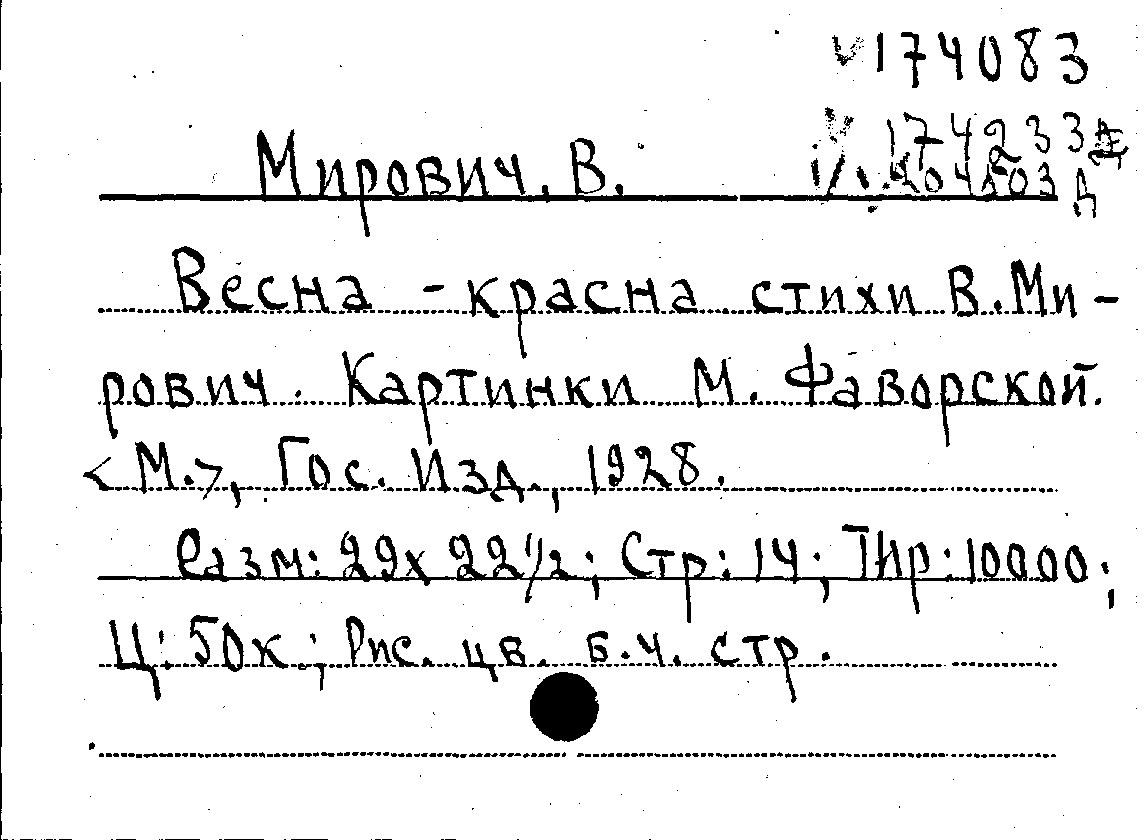 V 174083
V 174233 Д
Мирович. В.
V. 204503 Д
Весна - красна стихи В. Ми-
рович. Картинки М. Фаворской.
<М.>, Гос. Изд., 1928.
Разм: 29х 22 1/2; Стр: 14; Тир: 10000;
Ц: 50к; Рис. цв. б.ч. стр.